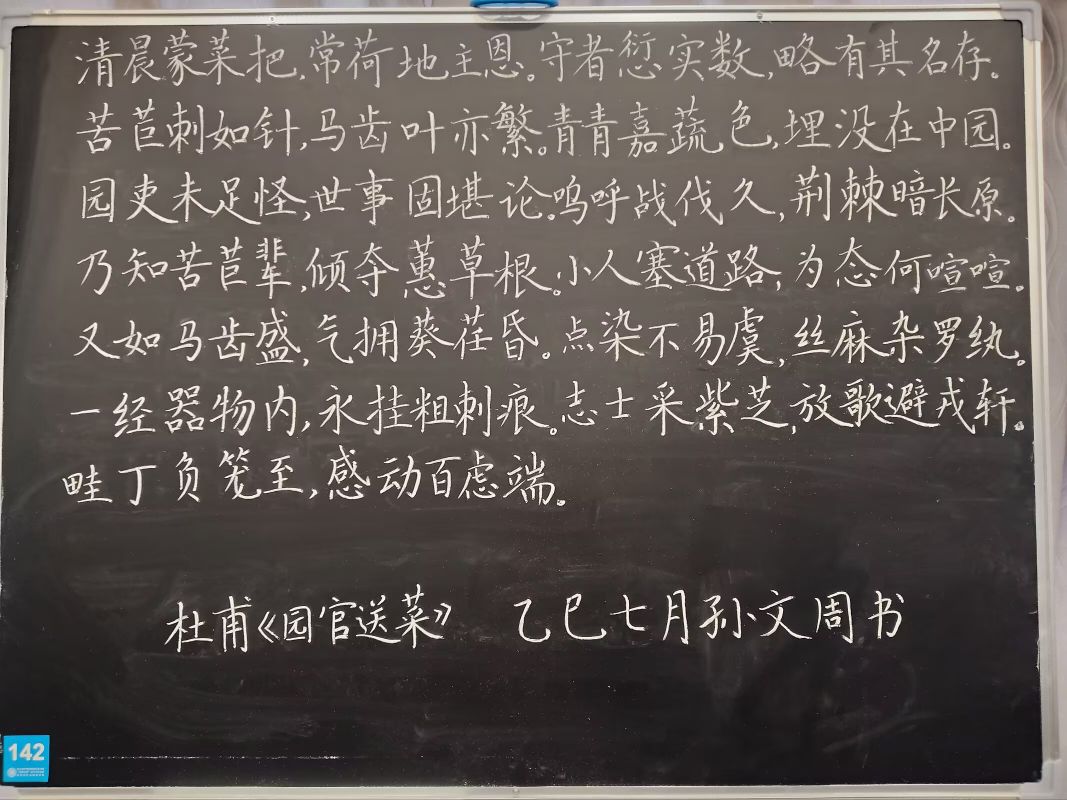 清晨蒙菜把,常荷地主恩。守者愆实数,略有其名存。
苦苣刺如针,马齿叶亦繁。青青嘉蔬色,埋没在中园。
园吏未足怪,世事固堪论。呜呼战伐久,荆棘暗长原。
乃知苦苣辈,倾夺蕙草根。小人塞道路,为态何喧喧。
又如马齿盛,气拥葵荏昏。点染不易虞,丝麻杂罗纨。
一经器物内,永挂粗刺痕。志士采紫芝,放歌避戎轩。
畦丁负笼至,感动百虑端。
杜甫《园官送菜》 乙巳七月孙文周书
142